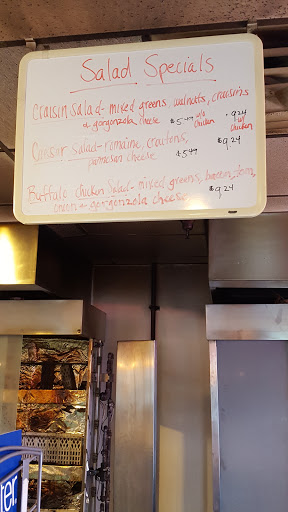 Salad Specials
Craisin Salad - mixed greens, walnuts, craisins
& gorgonzola cheese $5.49 w/o Chicken $9.24 w/ Chicken
Ceasar Salad - romaine, croutons,
parmesan cheese $5.49 $9.24
Buffalo Chicken Salad - mixed greens, bacon, tom,
onion & gorgonzola cheese $9.24
ter.